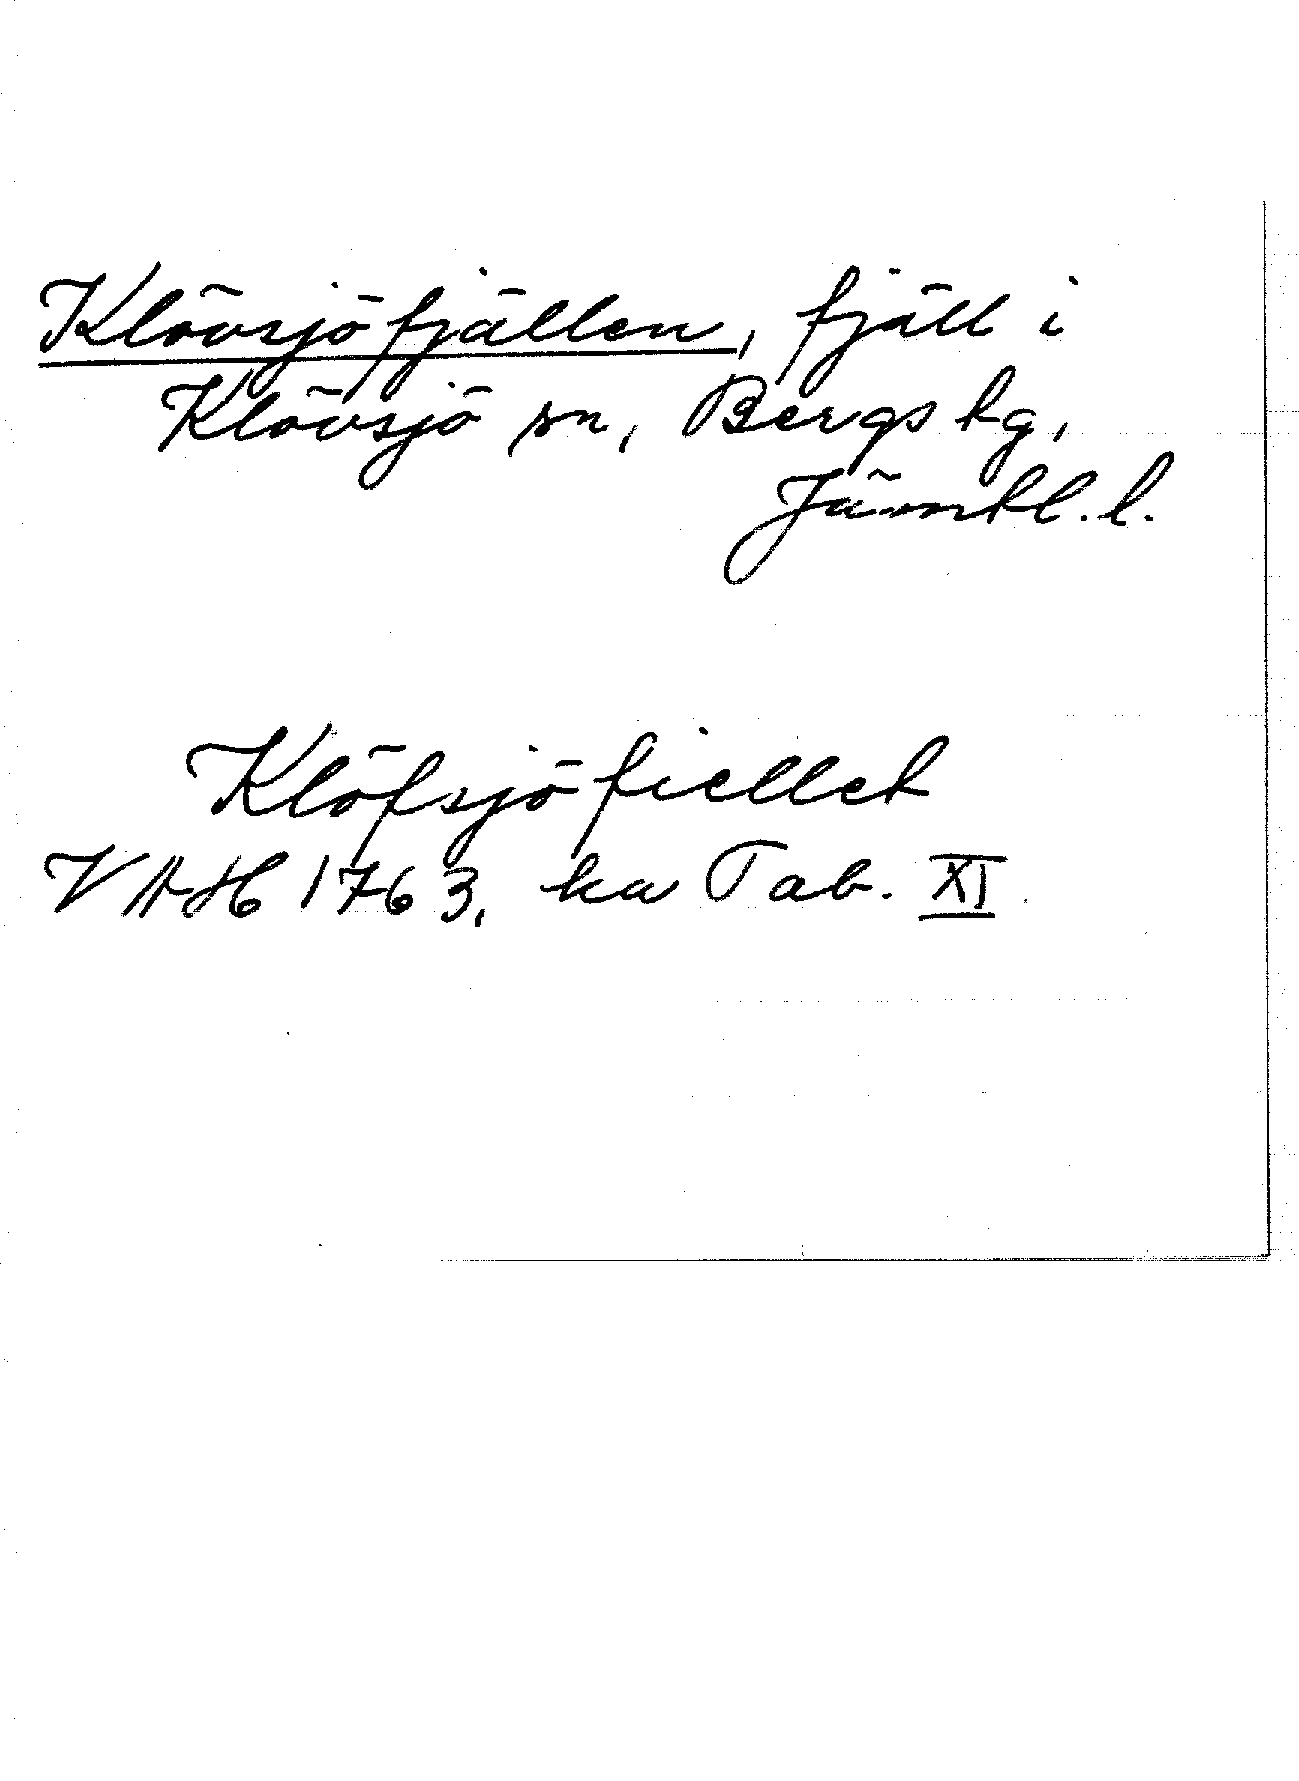 Klövsjöfjällen, fjäll i
Klövsjö sn, Bergs tg,
Jämtl. l.
Klöfsjöfiellet
VAH 1763, ka Tab. XI.